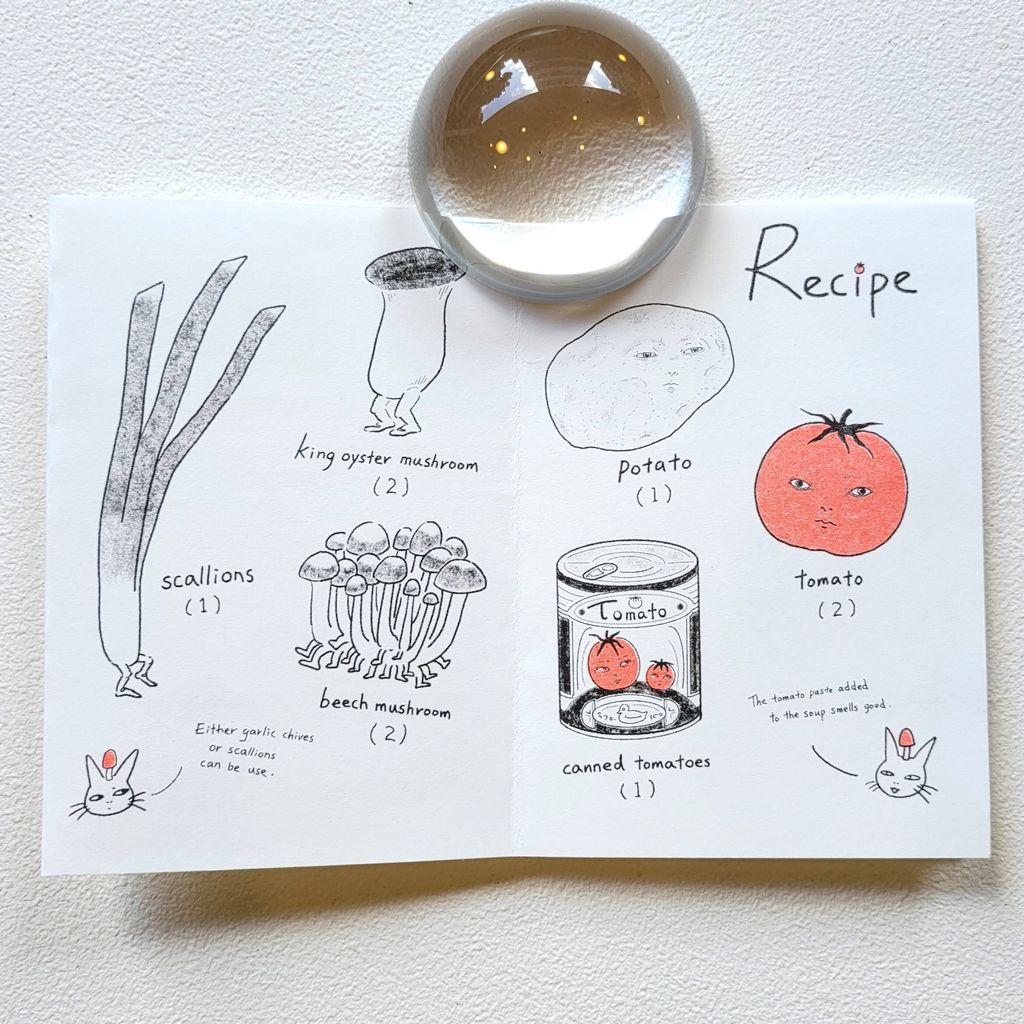 Recipe
scallions
(1)
king oyster mushroom
(2)
beech mushroom
(2)
Either garlic chives
or scallions
can be use.
potato
(1)
tomato
(2)
Tomato
canned tomatoes
(1)
The tomato paste added
to the soup smells good.